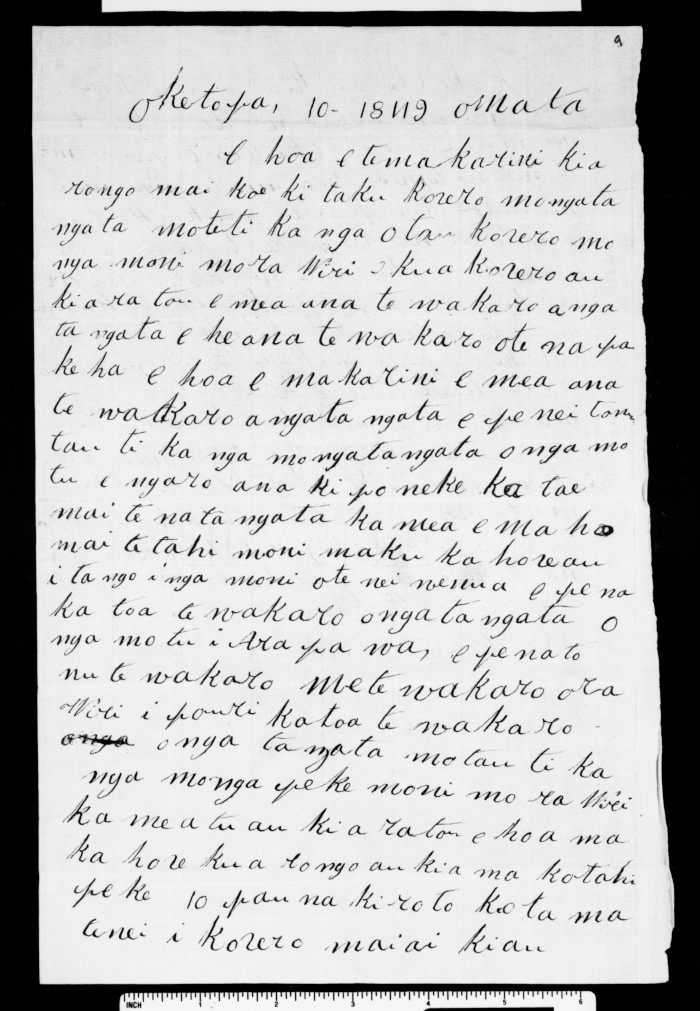 9
Oketopa, 10 - 1849 Omata
e hoa e te ma karini kia
rongo mai koe ki taku korero mo ngata
ngata mo te ti ka nga o tau korero mo
nga moni mo ra Wiri kua korero au
ki a ra tou e mea ana te wa karo a nga
ta ngata e he ana te wa karo o te na pa
ke ha e hoa e ma karini e mea ana
te wa karo a ngata ngata e pe nei tonu
tau ti ka nga mo ngata ngata o nga mo
tu e ngaro ana ki po neke ka tae
mai te na ta ngata ka mea e ma ha
mai te tahi moni maku ka hore au
i ta ngo i nga moni o te nei wenua e pe na
ka toa te wakaro o nga ta ngata o
nga mo tu i Ara pa wa, e pe na to
nu te wakaro me te wakaro o ra
Wiri i pouri ka toa te wa ka ro
onga o nga ta ngata mo tau ti ka
nga mo nga peke moni mo ra Wiri
ka me a tu au ki a ra tou e hoa ma
ka hore ku a rongo au kia ma kotahi
pe ke 10 pau na ki roto ko ta ma
tenei i korero mai ai ki au